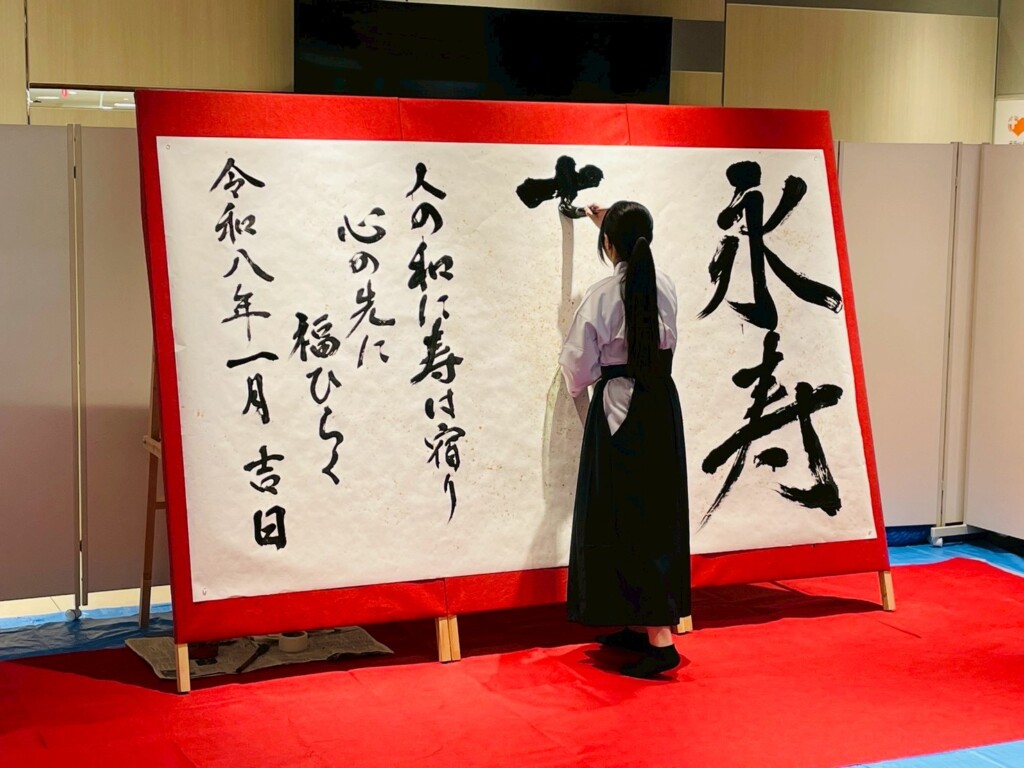 永寿
人の和に寿は宿り
心の先に
福ひらく
令和八年一月吉日